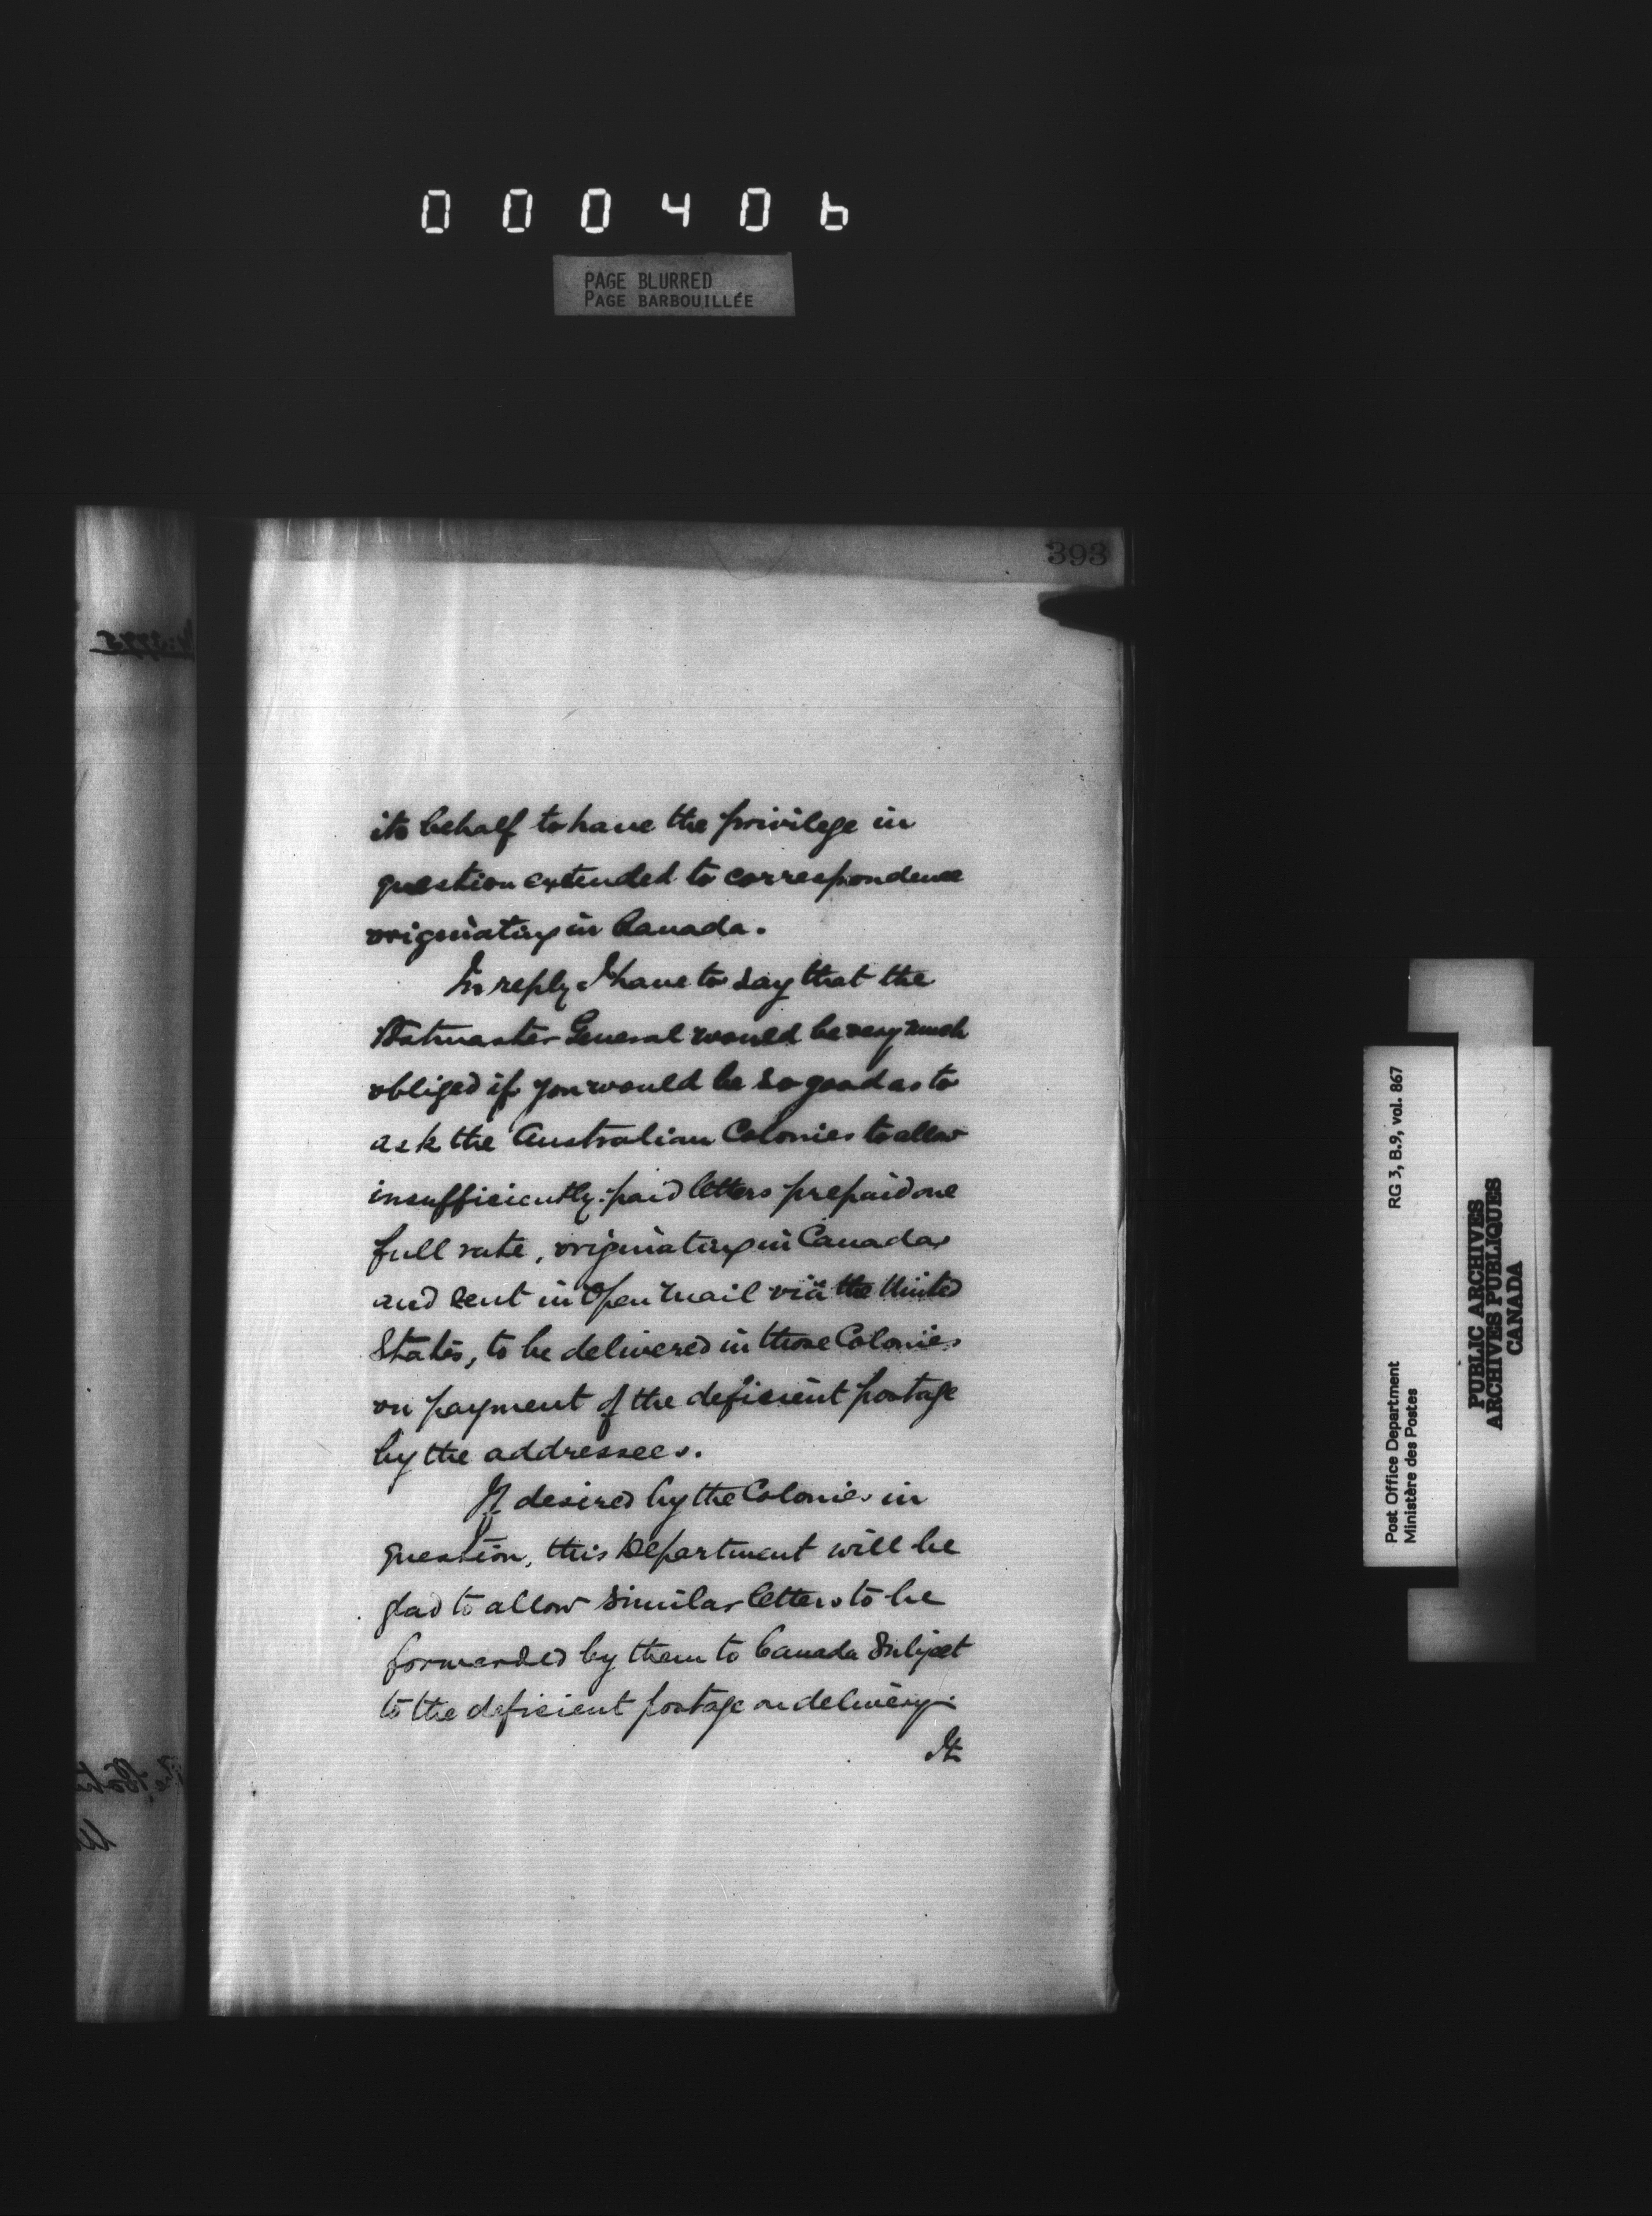 000406
PAGE BLURRED
PAGE BARBOUILLÉE
393
its behalf to have the privilege in
question extended to correspondence
originating in Canada.
In reply I have to say that the
Postmaster General would be very much
obliged if you would be so good as to
ask the Australian Colonies to allow
insufficiently-paid letters prepaid one
full rate, originating in Canada
and sent in Open Mail via the United
States, to be delivered in those Colonies
on payment of the deficient postage
by the addressees.
If desired by the Colonies in
question, this Department will be
glad to allow similar letters to be
forwarded by them to Canada subject
to the deficient postage on delivery.
It
Post Office Department RG 3, B.9, vol. 867
Ministère des Postes
PUBLIC ARCHIVES
ARCHIVES PUBLIQUES
CANADA